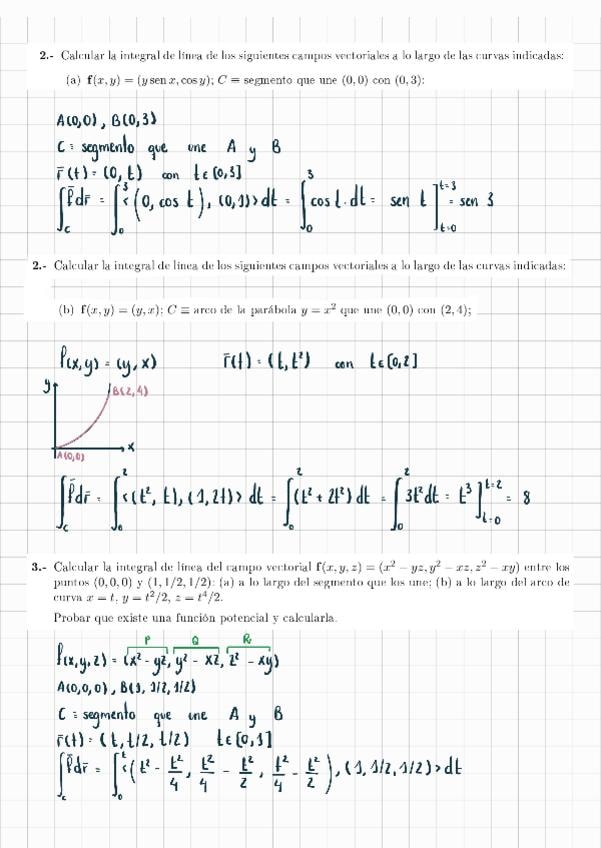 2.- Calcular la integral de línea de los siguientes campos vectoriales a lo largo de las curvas indicadas:
(a) f(x, y) = (y sen x, cos y); C ≡ segmento que une (0, 0) con (0, 3):
A(0,0), B(0,3)
C ≡ segmento que une A y B
r̄(t) = (0, t) con t∈[0,3]
∫_C f̄ dr̄ = ∫_0^3 <(0, cos t), (0,1)> dt = ∫_0^3 cos t · dt = sen t ]_{t=0}^{t=3} = sen 3
2.- Calcular la integral de línea de los siguientes campos vectoriales a lo largo de las curvas indicadas:
(b) f(x, y) = (y, x); C ≡ arco de la parábola y = x² que une (0, 0) con (2, 4);
f(x,y) = (y, x) r̄(t) = (t, t²) con t∈[0,2]
y
B(2,4)
x
A(0,0)
∫_C f̄ dr̄ = ∫_0^2 <(t², t), (1, 2t)> dt = ∫_0^2 (t² + 2t²) dt = ∫_0^2 3t² dt = t³ ]_{t=0}^{t=2} = 8
3.- Calcular la integral de línea del campo vectorial f(x, y, z) = (x² − yz, y² − xz, z² − xy) entre los
puntos (0, 0, 0) y (1, 1/2, 1/2): (a) a lo largo del segmento que los une; (b) a lo largo del arco de
curva x = t, y = t²/2, z = t⁴/2.
Probar que existe una función potencial y calcularla.
P Q R
f(x,y,z) = (x² - yz, y² - xz, z² - xy)
A(0,0,0), B(1, 1/2, 1/2)
C ≡ segmento que une A y B
r̄(t) = (t, t/2, t/2) t∈[0,1]
∫_C f̄ dr̄ = ∫_0^1 <(t² - t²/4, t²/4 - t²/2, t²/4 - t²/2), (1, 1/2, 1/2)> dt